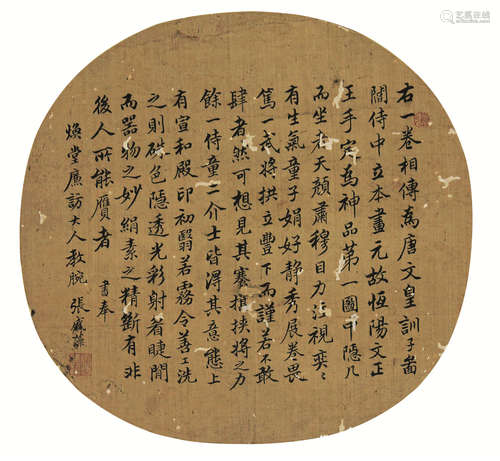 右一卷相傳為唐文皇訓子啚
閻侍中立本畫元故恆陽文正
王手㝎為神品第一圖中隱几
而坐者天顏肅穆目力注視奕〻
有生氣童子娟好静秀展卷畏
篤一武将拱立豐下而謹若不敢
肆者然可想見其搴旗挟将之力
餘一侍童二介士皆淂其意態上
有宣和殿印初翳若霧令善工洗
之則硃色隱透光彩射着睫間
而器物之妙絹素之精斷有非
後人所能贋者 書奉
煥堂廉訪大人教腕 張盛藻
艺狐在线